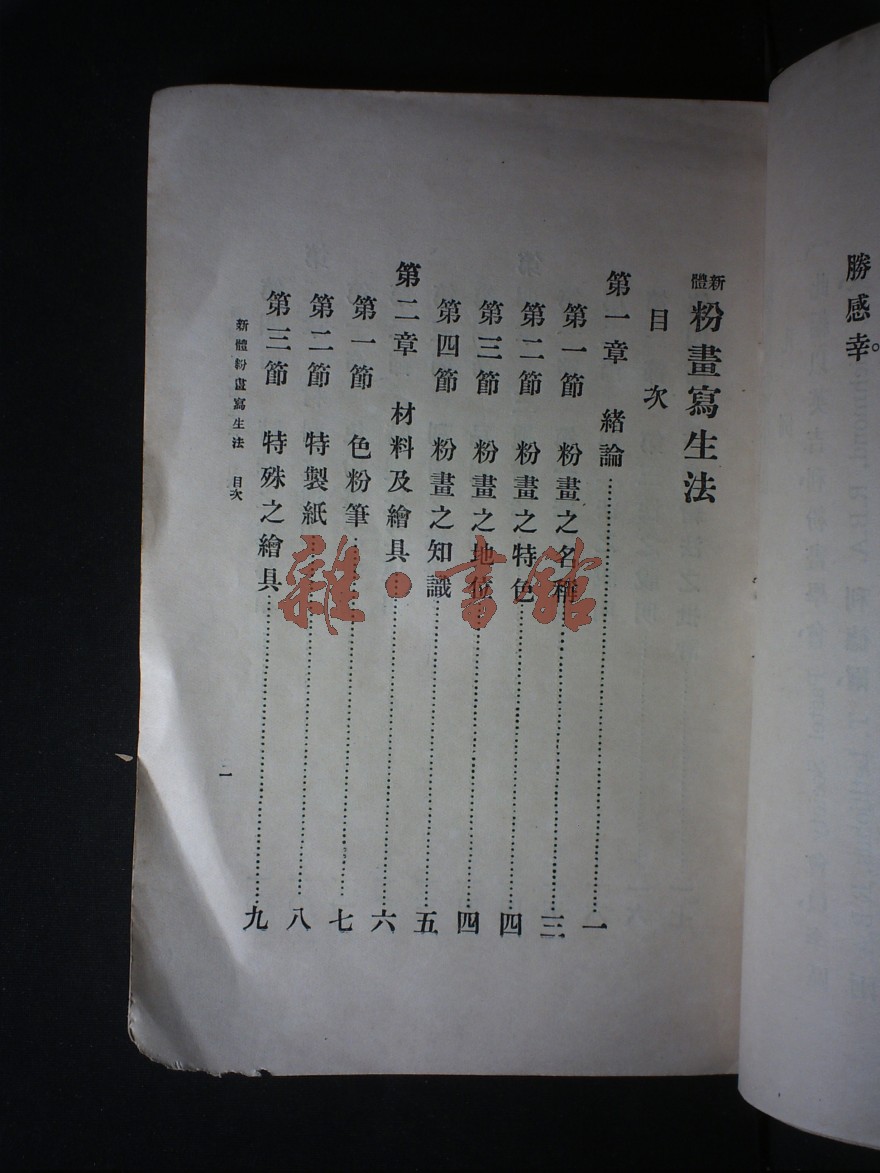 勝感幸。
新體 粉畫寫生法
目次
第一章 緒論……………一
第一節 粉畫之名稱……………三
第二節 粉畫之特色……………四
第三節 粉畫之地位……………四
第四節 粉畫之知識……………五
第二章 材料及繪具……………六
第一節 色粉筆……………七
第二節 特製紙……………八
第三節 特殊之繪具……………九
新體粉畫寫生法 目次
一
雜·書館